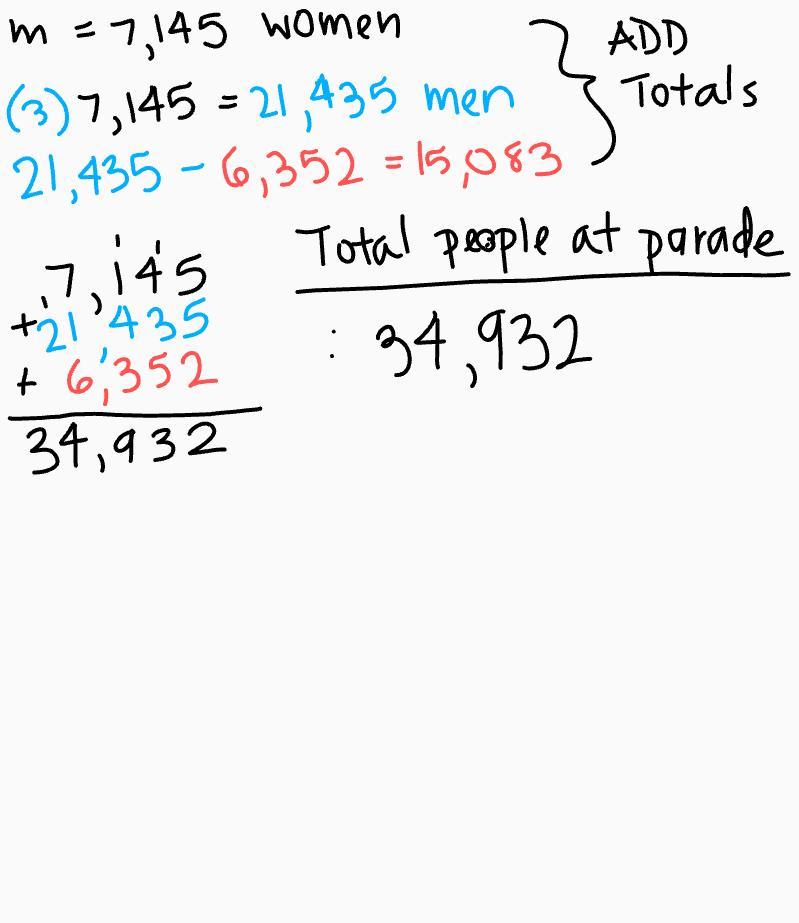 m = 7,145 women
(3) 7,145 = 21,435 men
21,435 - 6,352 = 15,083
} ADD
Totals
7,145
+ 21,435
+ 6,352
34,932
Total people at parade
: 34,932